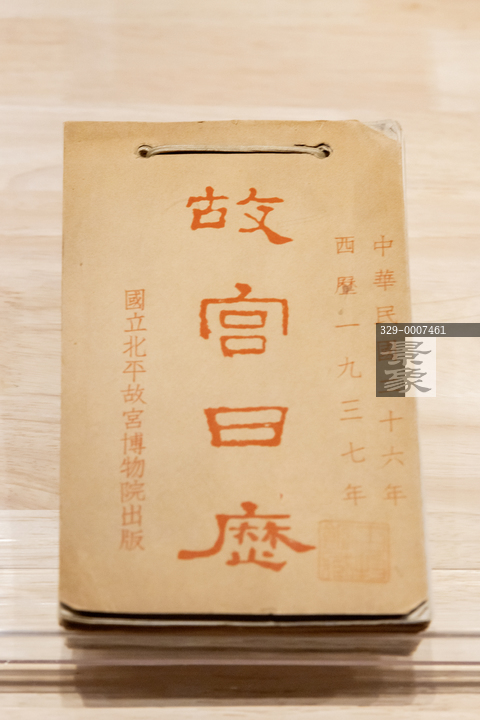 中華民十六年
西歷一九三七年
故宮日歷
國立北平故宮博物院出版
329-0007461
景象